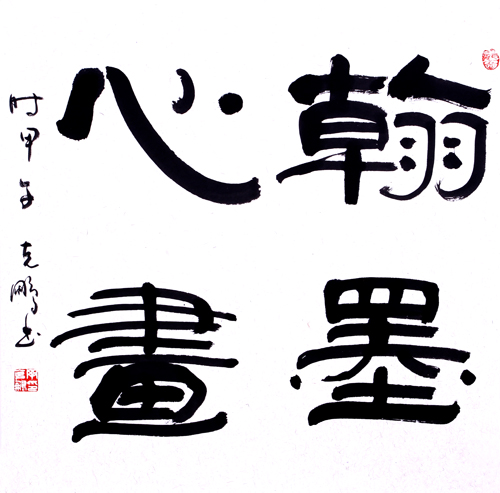 翰墨
心畫
时甲午 克鹏书